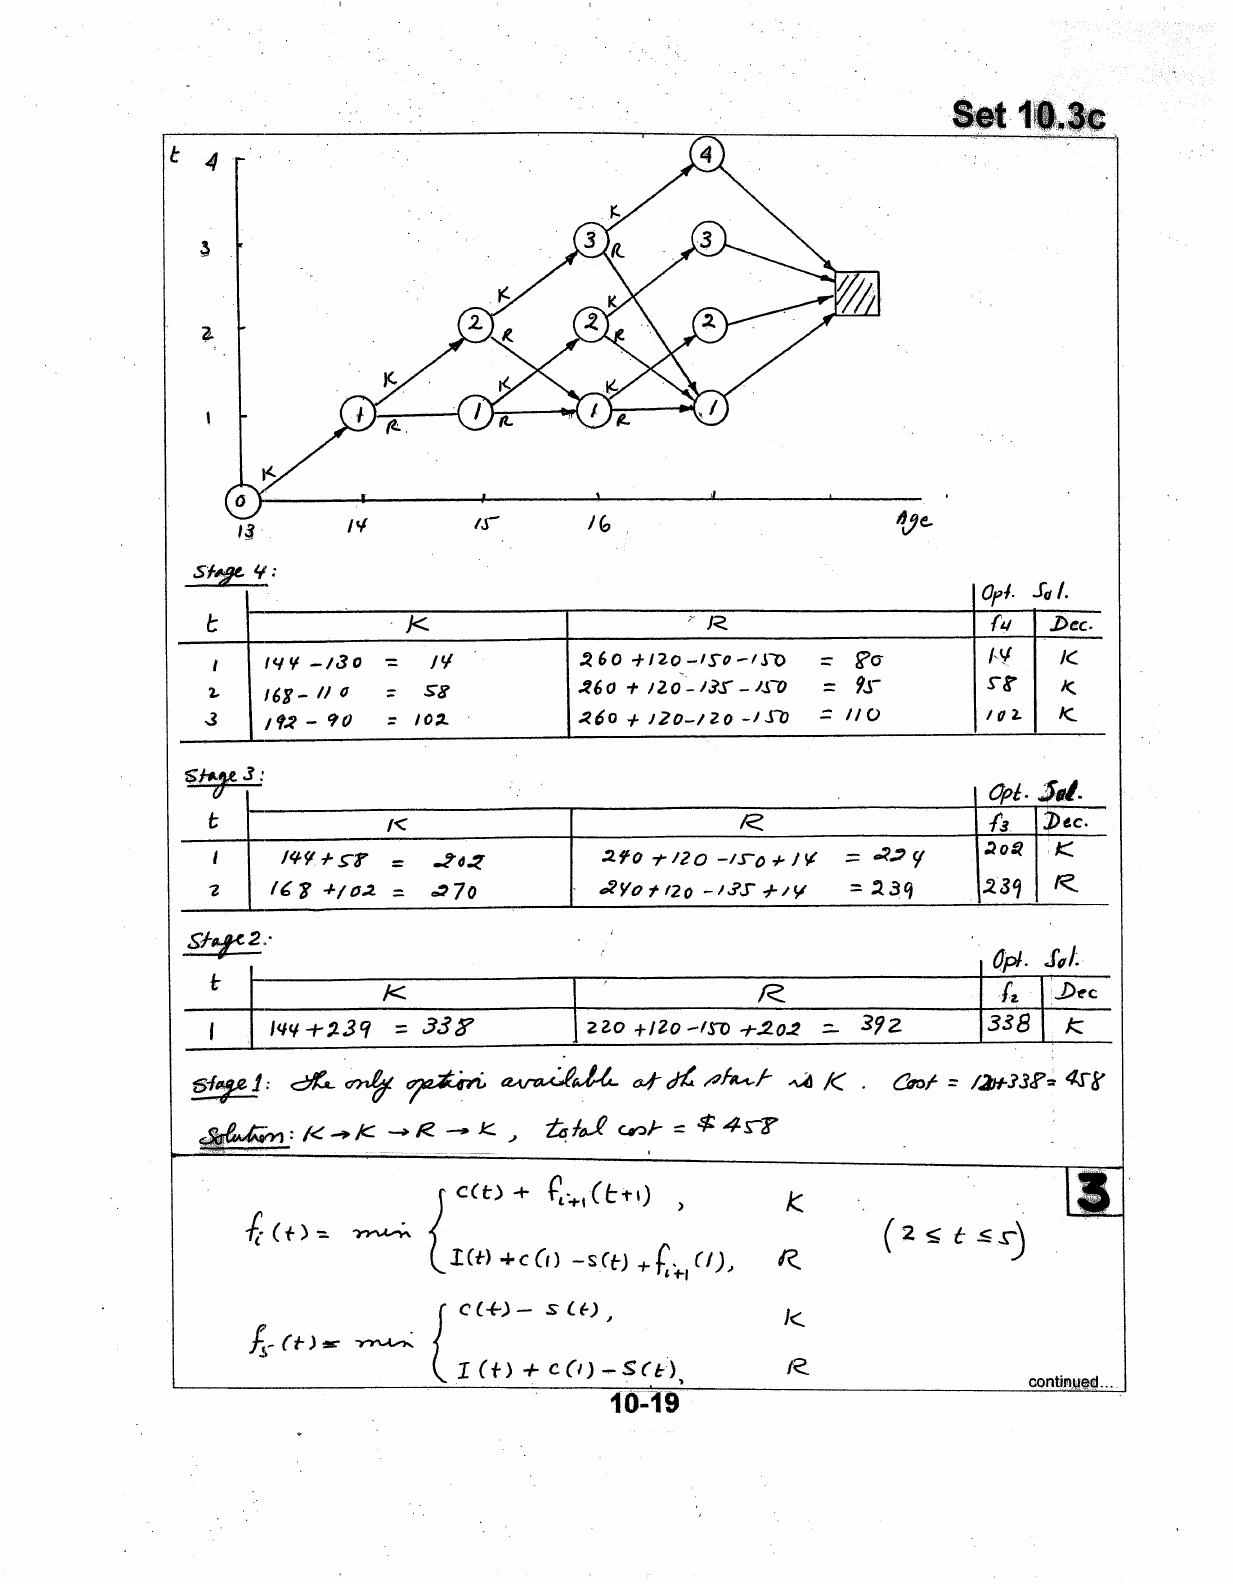 Set 10.3c
t 4
4
K
3
3 R
3
K
K
2
2
2 R
2 R
2
K
K
K
1
1 R
1 R
1 R
1
K
0
13 14 15 16 Age
Stage 4:
Opt. Sol.
t K R f4 Dec.
1 144 - 130 = 14 260 + 120 - 150 - 150 = 80 14 K
2 168 - 110 = 58 260 + 120 - 135 - 150 = 95 58 K
3 192 - 90 = 102 260 + 120 - 120 - 150 = 110 102 K
Stage 3:
Opt. Sol.
t K R f3 Dec.
1 144 + 58 = 202 240 + 120 - 150 + 14 = 224 202 K
2 168 + 102 = 270 240 + 120 - 135 + 14 = 239 239 R
Stage 2:
Opt. Sol.
t K R f2 Dec
1 144 + 239 = 338 220 + 120 - 150 + 202 = 392 338 K
Stage 1: The only option available at the start is K. Cost = 120+338 = 458
Solution: K → K → R → K, total cost = $458
3
c(t) + fi+1(t+1), K
fi(t) = min { (2 ≤ t ≤ 5)
I(t) + c(1) - s(t) + fi+1(1), R
c(t) - s(t), K
f5(t) = min {
I(t) + c(1) - s(t), R
continued...
10-19